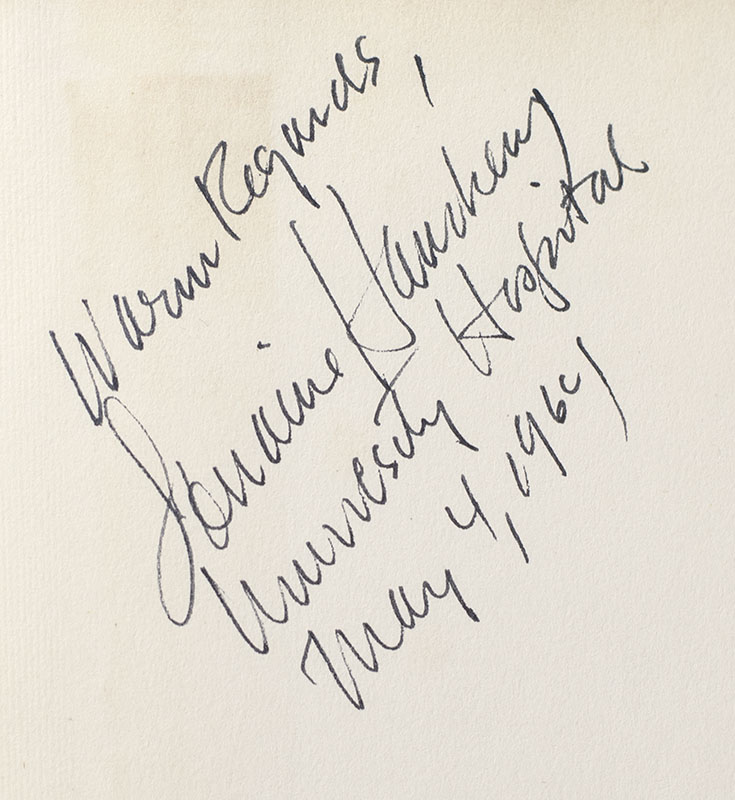 Warm Regards,
Lorraine Hansberry
University Hospital
May 4, 1964